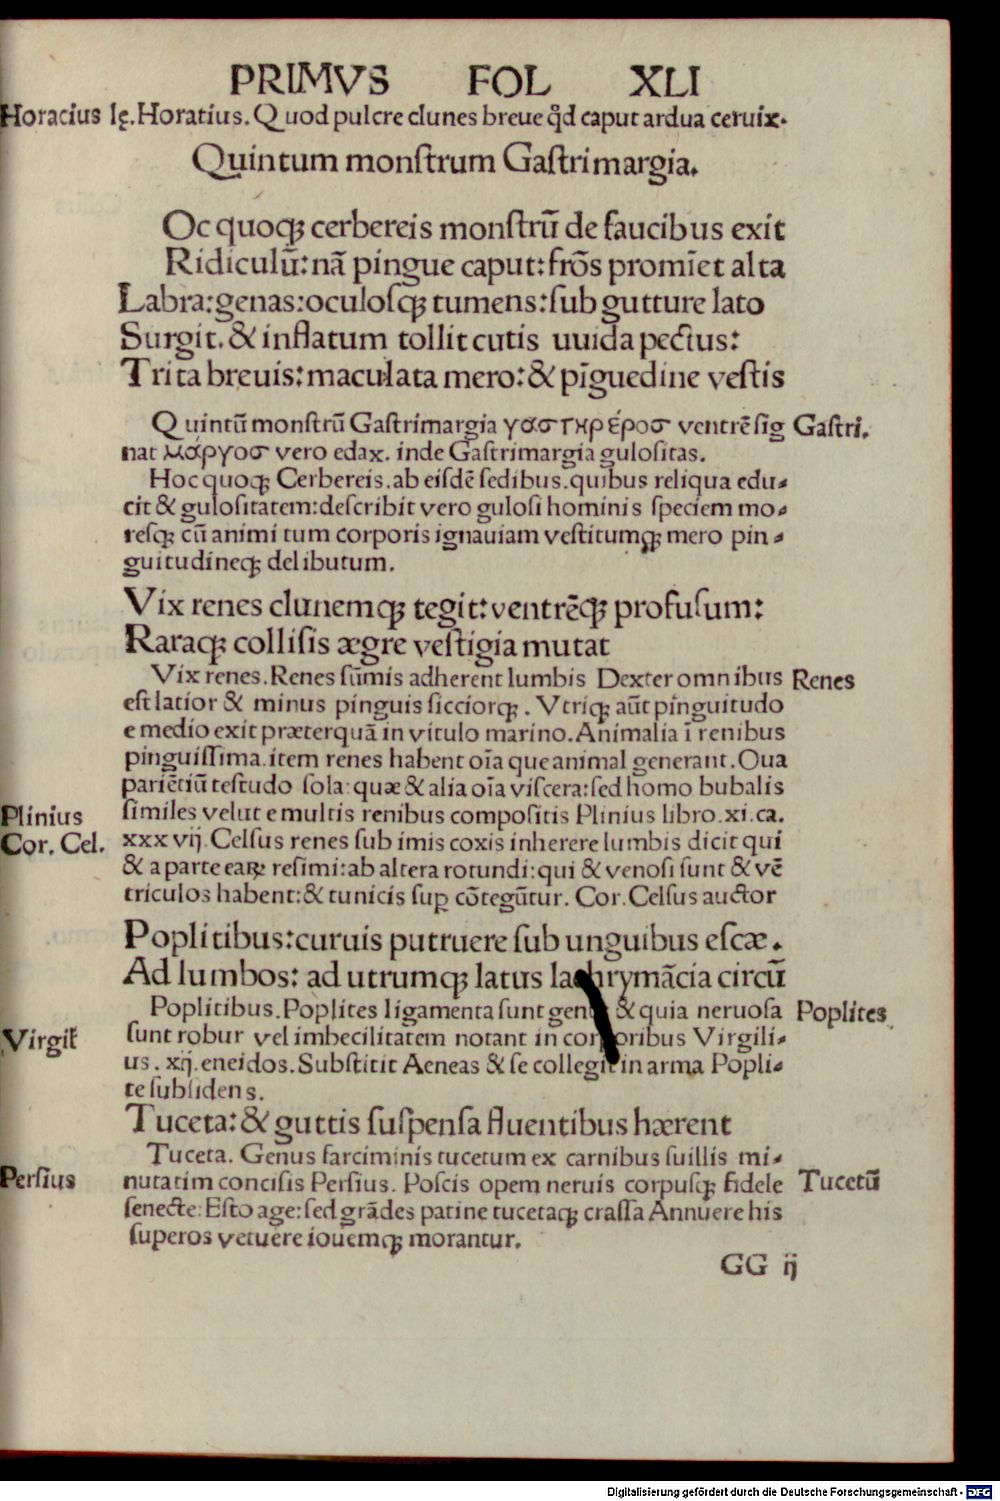 PRIMVS FOL XLI
Horacius lę. Horatius. Quod pulcre clunes breue qd̄ caput ardua ceruix.
Quintum monſtrum Gaſtrimargia.
Oc quoqꝫ cerbereis monſtrū de faucibus exit
Ridiculū: nā pingue caput: frōs promīet alta
Labra: genas: oculoſqꝫ tumens: ſub gutture lato
Surgit. & inflatum tollit cutis uuida pectus:
Trita breuis: maculata mero: & pīguedine veſtis
Quintū monſtrū Gaſtrimargia γαστηρ έροσ ventrē ſig Gaſtri.
nat μάργοσ vero edax. inde Gaſtrimargia guloſitas.
Hoc quoqꝫ Cerbereis. ab eiſdē ſedibus. quibus reliqua edu-
cit & guloſitatem: deſcribit vero guloſi hominis ſpeciem mo-
reſqꝫ cū animi tum corporis ignauiam veſtitumqꝫ mero pin-
guitudineqꝫ delibutum.
Vix renes clunemqꝫ tegit: ventrēqꝫ profuſum:
Raraqꝫ colliſis ægre veſtigia mutat
Vix renes. Renes ſūmis adherent lumbis Dexter omnibus Renes
eſt latior & minus pinguis ſicciorqꝫ. Vtriqꝫ aūt pinguitudo
e medio exit præterquā in vitulo marino. Animalia ī renibus
pinguiſſima. item renes habent oīa que animal generant. Oua
pariētiū teſtudo ſola: quæ & alia oīa viſcera: ſed homo bubalis
Plinius ſimiles velut e multis renibus compoſitis Plinius libro. xi. ca.
Cor. Cel. xxxvij. Celſus renes ſub imis coxis inherere lumbis dicit qui
& a parte eaꝝ reſimi: ab altera rotundi: qui & venoſi ſunt & vē
triculos habent: & tunicis ſuꝑ cōtegūtur. Cor. Celſus auctor
Poplitibus: curuis putruere ſub unguibus eſcæ.
Ad lumbos: ad utrumqꝫ latus lachrymācia circū
Poplitibus. Poplites ligamenta ſunt & quia neruoſa Poplites
Virgiƚ ſunt robur vel imbecilitatem notant in corporibus Virgili-
us. xij. eneidos. Subſtitit Aeneas & ſe collegit in arma Popli-
te ſubſidens.
Tuceta: & guttis ſuſpenſa fluentibus hærent
Tuceta. Genus farciminis tucetum ex carnibus ſuillis mi-
Perſius nutatim conciſis Perſius. Poſcis opem neruis corpuſqꝫ fidele Tucetū
ſenecte: Eſto age: ſed grādes patine tucetaqꝫ craſſa Annuere his
ſuperos vetuere iouemqꝫ morantur.
GG ij
Digitalisierung gefördert durch die Deutsche Forschungsgemeinschaft - DFG